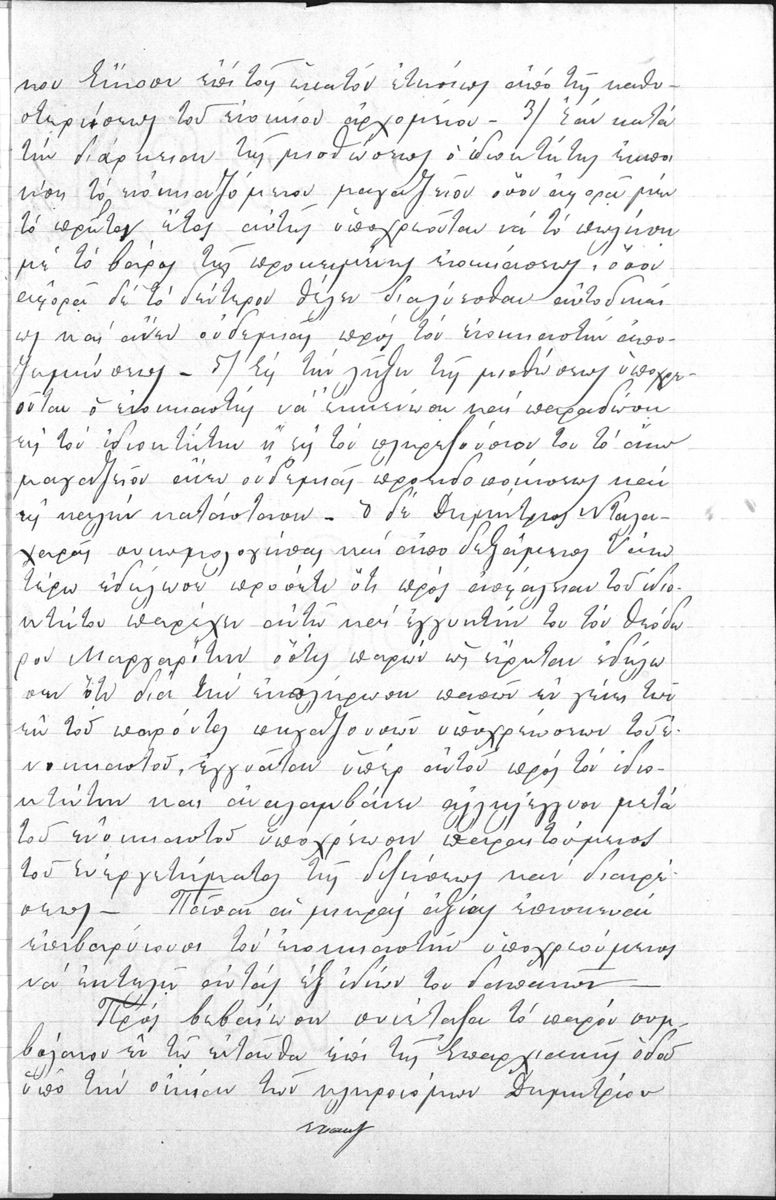 κου εἴκοσι ἐπί τοῖς ἑκατόν ἐτησίως ἀπό τῆς καθυ-
στερήσεως τοῦ ἐνοικίου ἀρχομένου – 3/ Ἐάν κατά
τήν διάρκειαν τῆς μισθώσεως ὁ ἰδιοκτήτης ἐκποι
ήσῃ τό ἐνοικιαζόμενον μαγαζεῖον ὅσον ἀφορᾶ μέν
τό πρῶτον ἔτος αὐτῆς ὑποχρεοῦται νά τό πωλήσῃ
μέ τό βάρος τῆς προκειμένης ἐνοικιάσεως, ὅσον
ἀφορᾶ δέ τό δεύτερον θέλει διαλύεσθαι αὐτοδικαί
ως καί ἄνευ οὐδεμιᾶς πρός τόν ἐνοικιαστήν ἀπο-
ζημιώσεως – 5/ Εἰς τήν λῆξιν τῆς μισθώσεως ὑποχρε-
οῦται ὁ ἐνοικιαστής νά ἐκκενώσῃ καί παραδώσῃ
εἰς τόν ἰδιοκτήτην ἤ εἰς τόν πληρεξούσιόν του τό ἄνω
μαγαζεῖον ἄνευ οὐδεμιᾶς προειδοποιήσεως καί
εἰς καλήν κατάστασιν – Ὁ δέ Δημήτριος
συνομολογήσας καί ἀποδεξάμενος τ' ἀνω
τέρω ἐδήλωσε προσέτι ὅτι πρός ἀσφάλειαν τοῦ ἰδιο-
κτήτου παρέχει αὐτῷ καί ἐγγυητήν του τόν Θεόδω
ρον Μαργαρίτην ὅστις παρών ὡς εἴρηται ἐδήλω
σεν ὅτι διά τήν ἐκπλήρωσιν πασῶν ἐν γένει τῶν
ἐκ τοῦ παρόντος πηγαζουσῶν ὑποχρεώσεων τοῦ ἐ-
νοικιαστοῦ, ἐγγυᾶται ὑπέρ αὐτοῦ πρός τόν ἰδιο-
κτήτην καί ἀναλαμβάνει ἀλληλέγγυον μετά
τοῦ ἐνοικιαστοῦ ὑποχρέωσιν παραιτούμενος
τοῦ εὐεργετήματος τῆς διζήσεως καί διαιρέ-
σεως – Πᾶσαι αἱ μικρᾶς ἀξίας ἐπισκευαί
ἐπιβαρύνουσι τόν ἐνοικιαστήν ὑποχρεούμενος
νά ἐκτελῇ αὐτάς ἐξ ἰδίων του δαπανῶν –
Πρός βεβαίωσιν συνέταξα τό παρόν συμ-
βόλαιον ἐν τῷ ἐνταῦθα ἐπί τῆς Ἐπαρχιακῆς ὁδοῦ
ὑπό τήν οἰκίαν τῶν κληρονόμων Δημητρίου